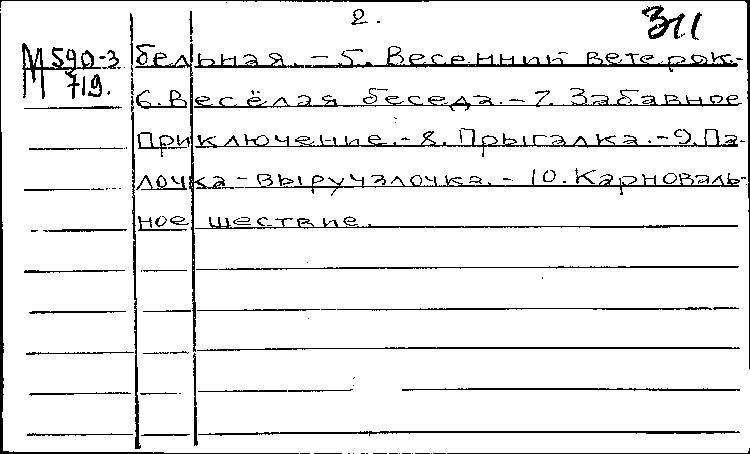 2.
311
М 590-3
М 719.
бельная. - 5. Весенний ветерок.-
6. Весёлая беседа. - 7. Забавное
приключение. - 8. Прыгалка. - 9. Па-
лочка - выручалочка. - 10. Карноваль-
ное шествие.